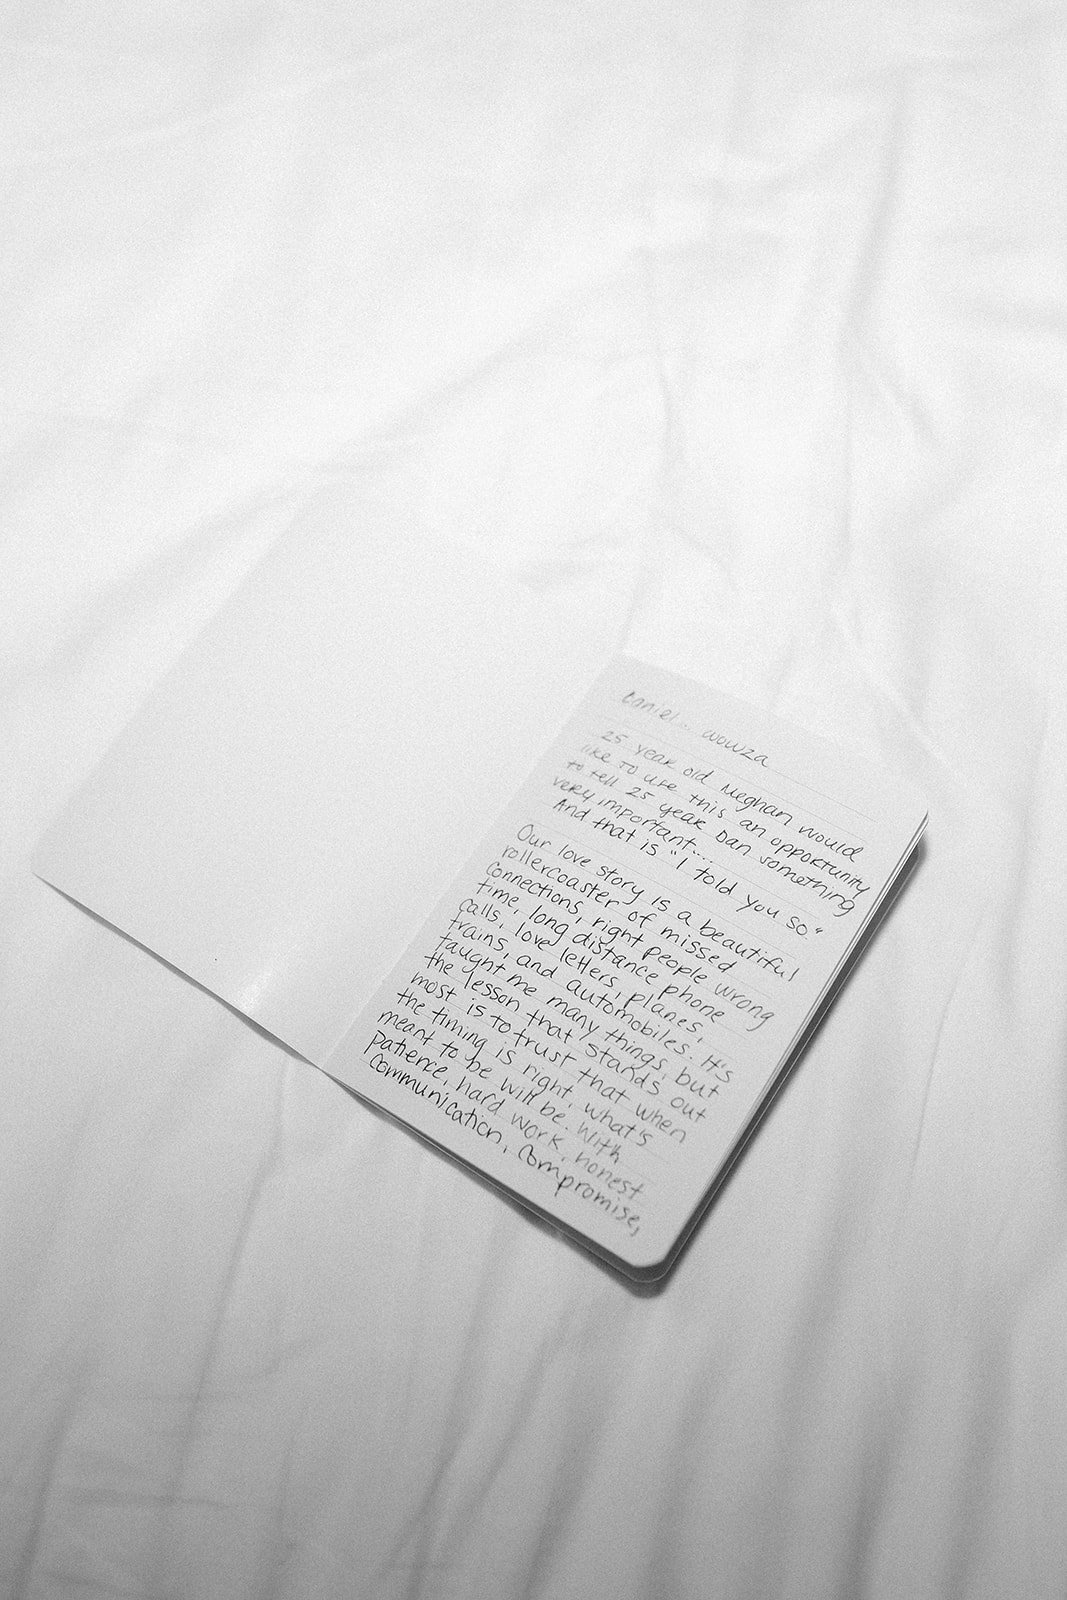 Daniel... wowza
25 year old Meghan would
like to use this an opportunity
to tell 25 year Dan something
very important....
And that is "I told you so."
Our love story is a beautiful
rollercoaster of missed
connections, right people wrong
time, long distance phone
calls, love letters, planes,
trains, and automobiles. It's
taught me many things, but
the lesson that stands out
most is to trust that when
the timing is right, what's
meant to be will be. With
patience, hard work, honest
communication, compromise,